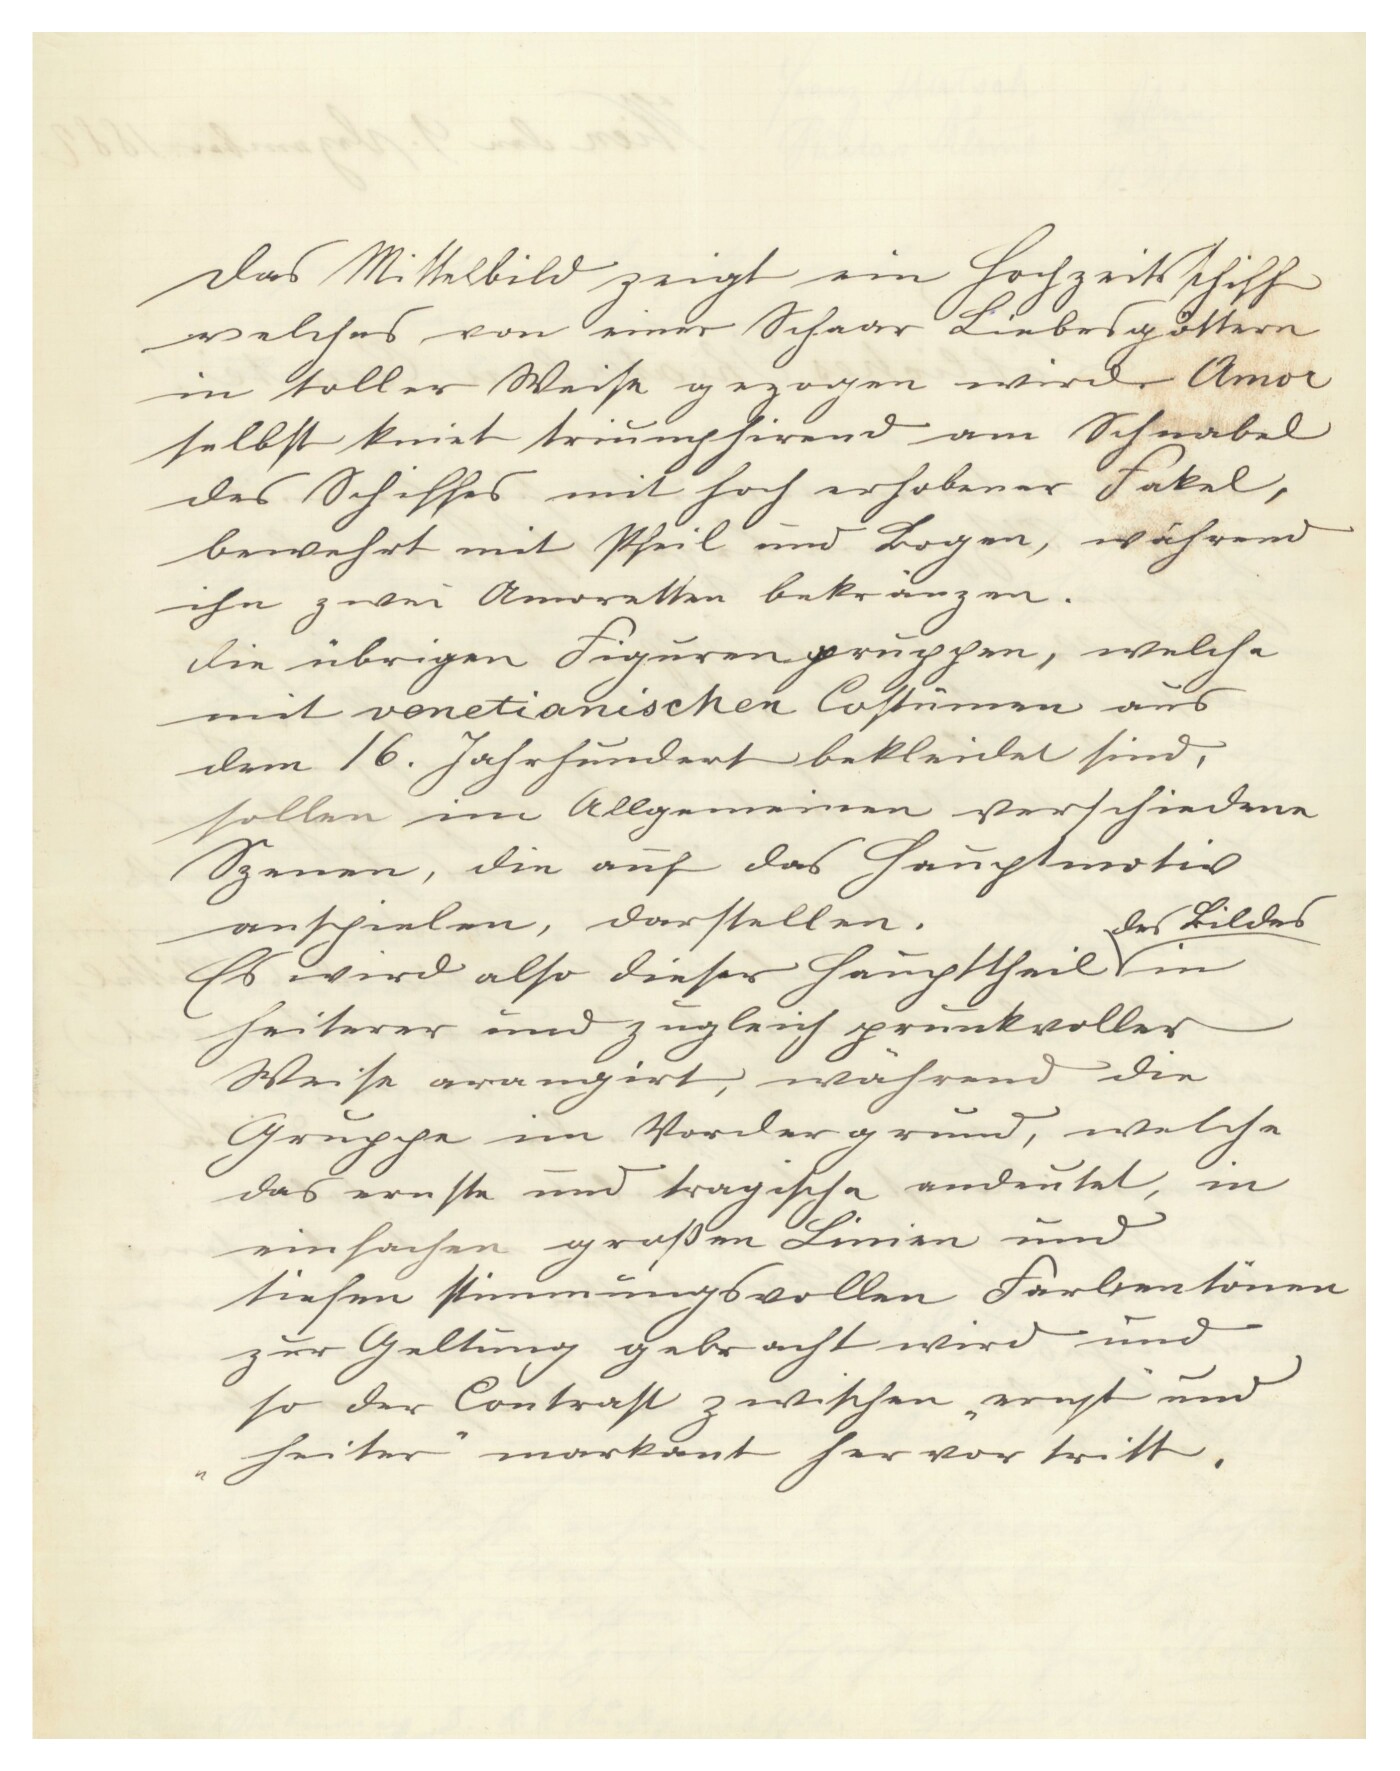 Das Mittelbild zeigt ein Hochzeitsschiff
welches von einer Schaar Liebesgöttern
in toller Weise gezogen wird. Amor
selbst kniet triumphirend am Schnabel
des Schiffes mit hoch erhobener Fakel,
bewehrt mit Pfeil und Bogen, während
ihn zwei Amoretten bekränzen.
Die übrigen Figurengruppen, welche
mit venetianischen Costümen aus
dem 16. Jahrhundert bekleidet sind,
sollen im Allgemeinen verschiedene
Szenen, die auf das Hauptmotiv
anspielen, darstellen.
des Bildes
Es wird also dieser Haupttheil in
heiterer und zugleich prunkvoller
Weise arangirt, während die
Gruppe im Vordergrund, welche
das ernste und tragische andeutet, in
einfachen großen Linien und
tiefen stimmungsvollen Farbentönen
zur Geltung gebracht wird und
so der Contrast zwischen „ernst" und
„heiter" markant hervortritt.